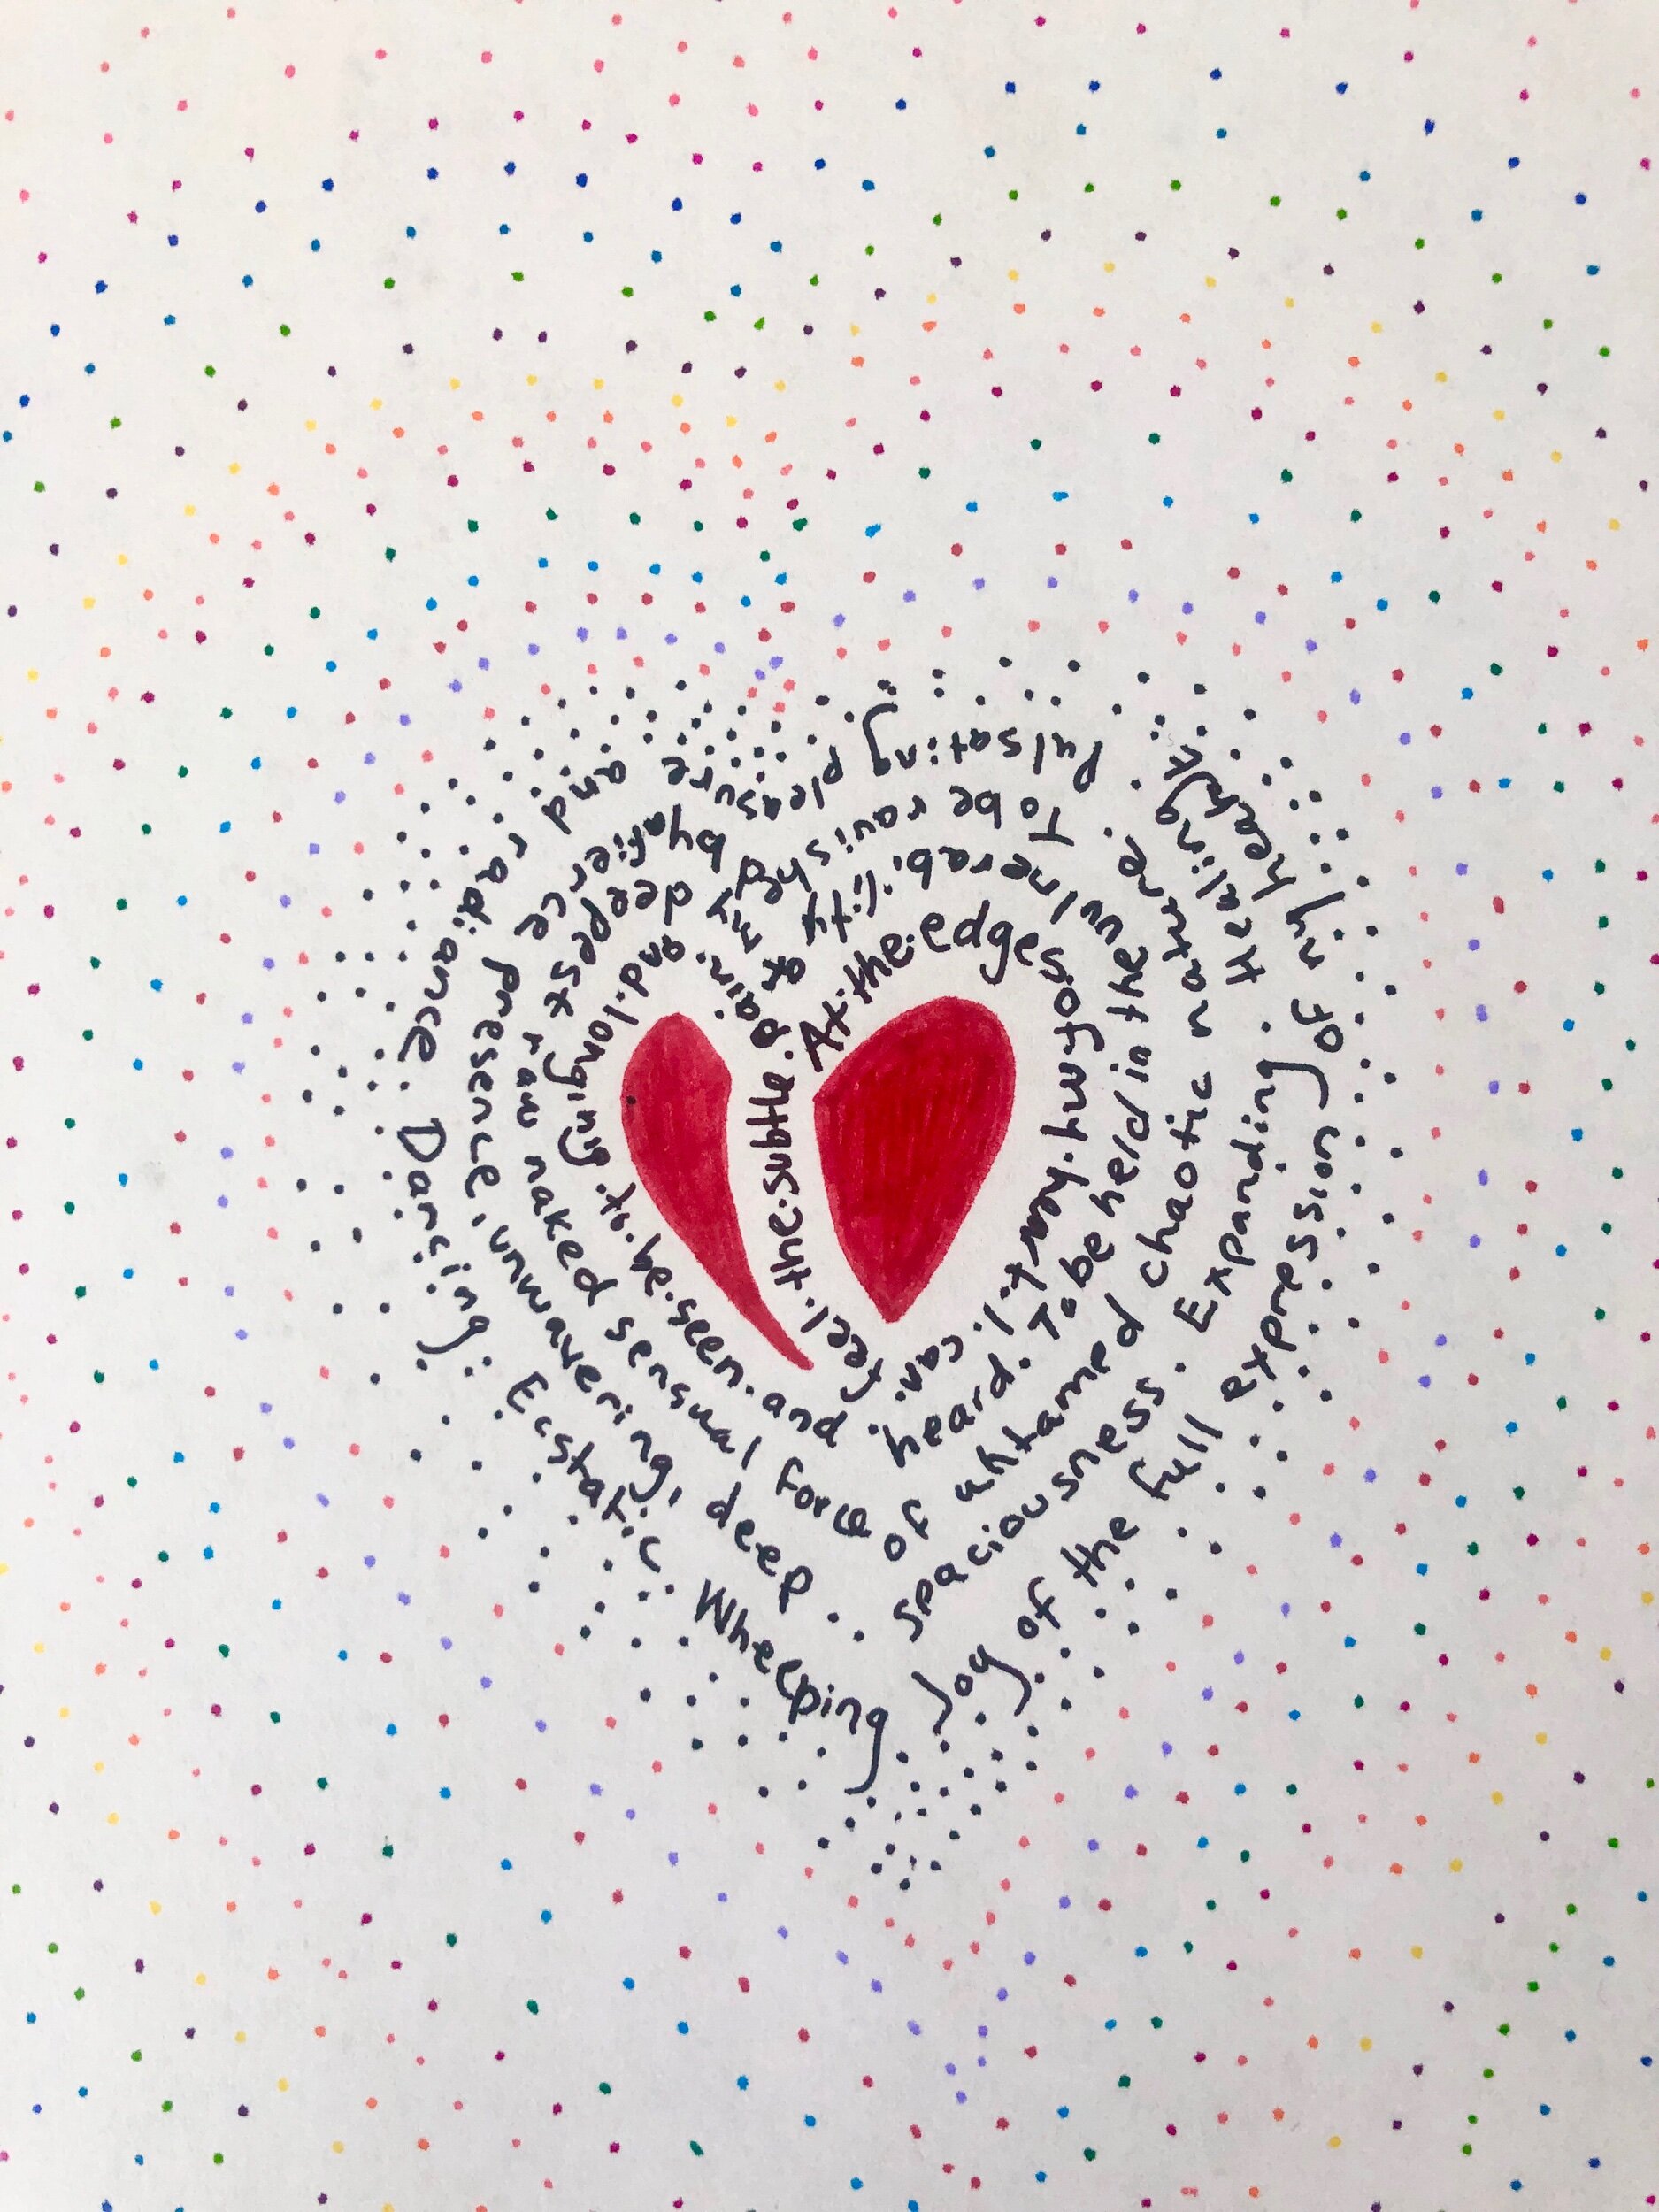 At.the.edges.of.my.heart.I.can.feel.the.subtle.pain.and.longing.to.be.seen.and heard. To be held in the vulnerability of my deepest raw naked sensual force of untamed chaotic nature. To be ravished by a fierce presence, unwavering, deep.. spaciousness. Expanding. Healing. Pulsating pleasure and radiance. Dancing. Ecstatic. Whelping Joy of the full expression of my heart